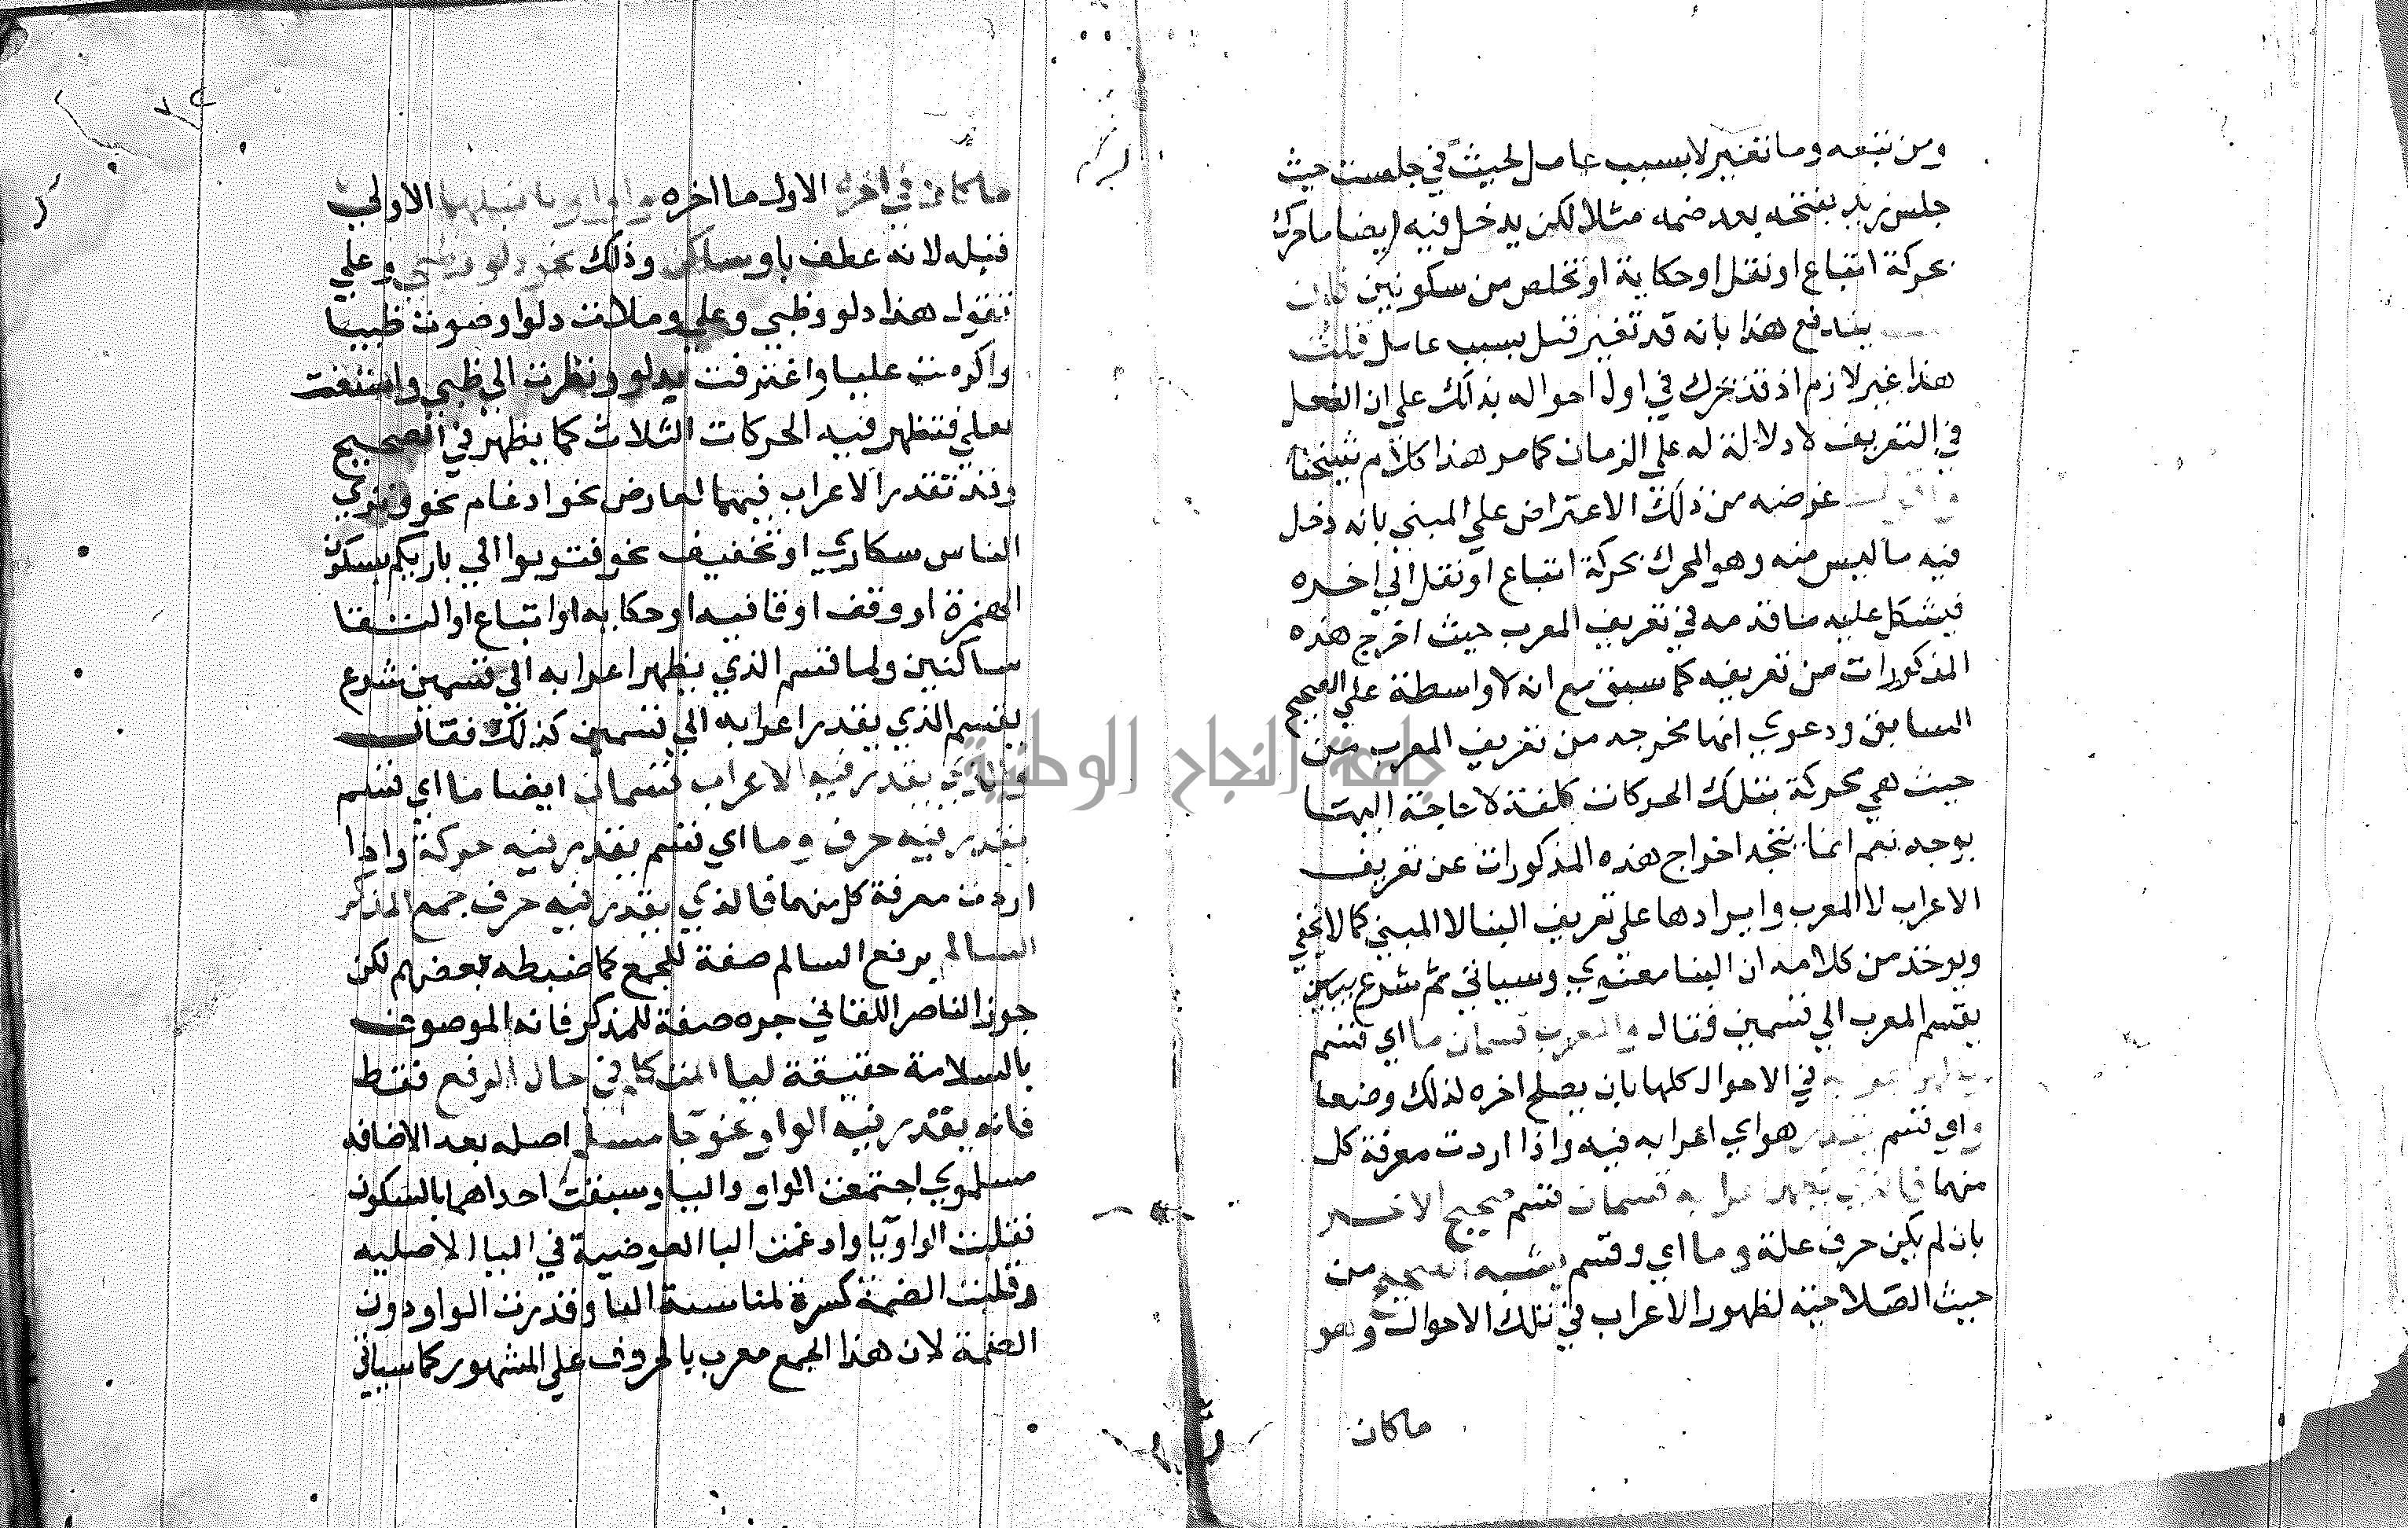 ومن تبعه وما تغير لا بسبب عامل لحيث في جلست حيث
جلس زيد بفتحه بعد ضمه مثلا لكن يدخل فيه ايضا ما حرك
بحركة اتباع او نقل او حكاية او تخلص من سكونين فان
يندفع هذا بانه قد تغير قبل بسبب عامل قلت
هذا غير لازم اذ قد تحرك في اول احواله بذلك على ان الفعل
في التعريف لا دلالة له على الزمان كما مر هذا كلام شيخنا
واقول غرضه من ذلك الاعتراض علي المبني بانه دخل
فيه ما ليس منه وهو المحرك بحركة اتباع او نقل الي اخره
فيشكل عليه ما قدمه في تعريف المعرب حيث اخرج هذه
المذكورات من تعريفه كما سبق مع انه لا واسطة علي الصحيح
السابق ودعوي انها مخرجه من تعريف المعرب من
حيث هي محركة بتلك الحركات كلفة لا حاجة اليها
بوجه نعم انما يتجه اخراج هذه المذكورات عن تعريف
الاعراب لا المعرب وايرادها علي تعريف البنا لا المبني كما لا يخفي
ويوخذ من كلامه ان البنا معنوي وسياتي ثم شرع يبين
يقسم المعرب الي قسمين فقال والمعرب قسمان ما اي قسم
يظهر اعرابه في الاحوال كلها بان يصلح اخره لذلك وضعا
واي قسم يقدر هو اي اعرابه فيه واذا اردت معرفة كل
منهما فالذي يظهر اعرابه قسمان قسم صحيح الاخر
بان لم يكن حرف علة وما اي وقسم يشبه الصحيح من
حيث الصلاحية لظهور الاعراب في تلك الاحوال وهو
ماكان
ماكان في اخره الاول ما اخره واو او يا قبلهما الاولي
قبله لانه عطف باو ساكن وذلك نحو دلو وظبي وعلي
تقول هذا دلو وظبي وعلي وملات دلوا وصوت ظبيا
واكرمت عليا واغترفت بدلو ونظرت الي ظبي واستغثت
بعلي فتظهر فيه الحركات الثلاث كما يظهر في الصحيح
وقد تقدر الاعراب فيهما لعارض نحو ادغام نحو وتري
الناس سكاري او تخفيف نحو فتوبوا الي باريكم بسكون
الهمزة او وقف او قافيه او حكايه او اتباع او التقا
ساكنين ولما قسم الذي يظهر اعرابه الي قسمين شرع
يقسم الذي يقدر اعرابه الي قسمين كذلك فقال
والذي يقدر فيه الاعراب قسمان ايضا ما اي قسم
يقدر فيه حرف وما اي قسم يقدر فيه حركة واذا
اردت معرفة كل منهما فالذي يقدر فيه حرف جمع المذكر
السالم برفع السالم صفة للجمع كما ضبطه بعضهم لكن
جوز الناصر اللقاني جره صفة للمذكر فانه الموصوف
بالسلامة حقيقة ليا المتكلم في حال الرفع فقط
فانه يقدر فيه الواو نحو جا مسلمي اصله بعد الاضافه
مسلموي اجتمعت الواو واليا وسبقت احداهما بالسكون
فقلبت الواو يا وادغمت اليا العوضية في اليا الاصليه
وقلبت الضمة كسرة لمناسبة اليا وقدرت الواو دون
الضمة لان هذا الجمع معرب بالحروف علي المشهور كما سياتي
جامعة النجاح الوطنية